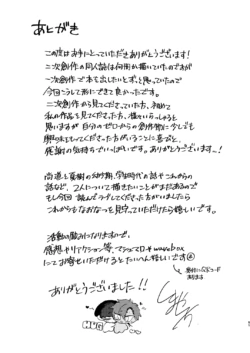 あとがき
この度はお手にとっていただきありがとうございます！
二次創作の同人誌は何冊か描いていたのですが
一次創作で本を出したいとずっと思っていたので
今回こうして形にできて良かったです。
二次創作から見てくださっていた方、初めて
私の作品を見てくださった方、様々いらっしゃると
思いますが 自分のゼロからの創作物に少しでも
興味をもってくださった方がいることに喜びと、
感謝の気持ちでいっぱいです。ありがとうございます〜！
尚道と夏樹の幼少期、学生時代の話やこれからの
話など、2人について描きたいことがまだあるので
もし今回 読んでみてくださった方がいましたら
これからもなおなつを見守っていただけたら嬉しいです。
活動の励みになりますので、
感想やリアクション等、マシュマロやwavebox
にてお寄せいただけるとたいへん嬉しいです
ありがとうございました！！
HUG
1